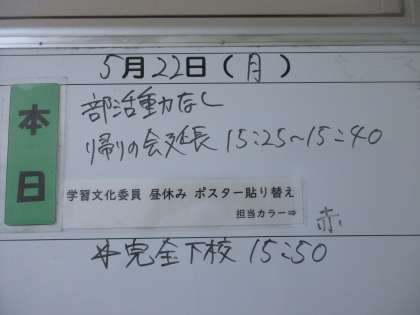 5月22日(月)
本日
部活動なし
帰りの会延長 15:25~15:40
学習文化委員 昼休み ポスター貼り替え
担当カラー⇒
赤
完全下校 15:50